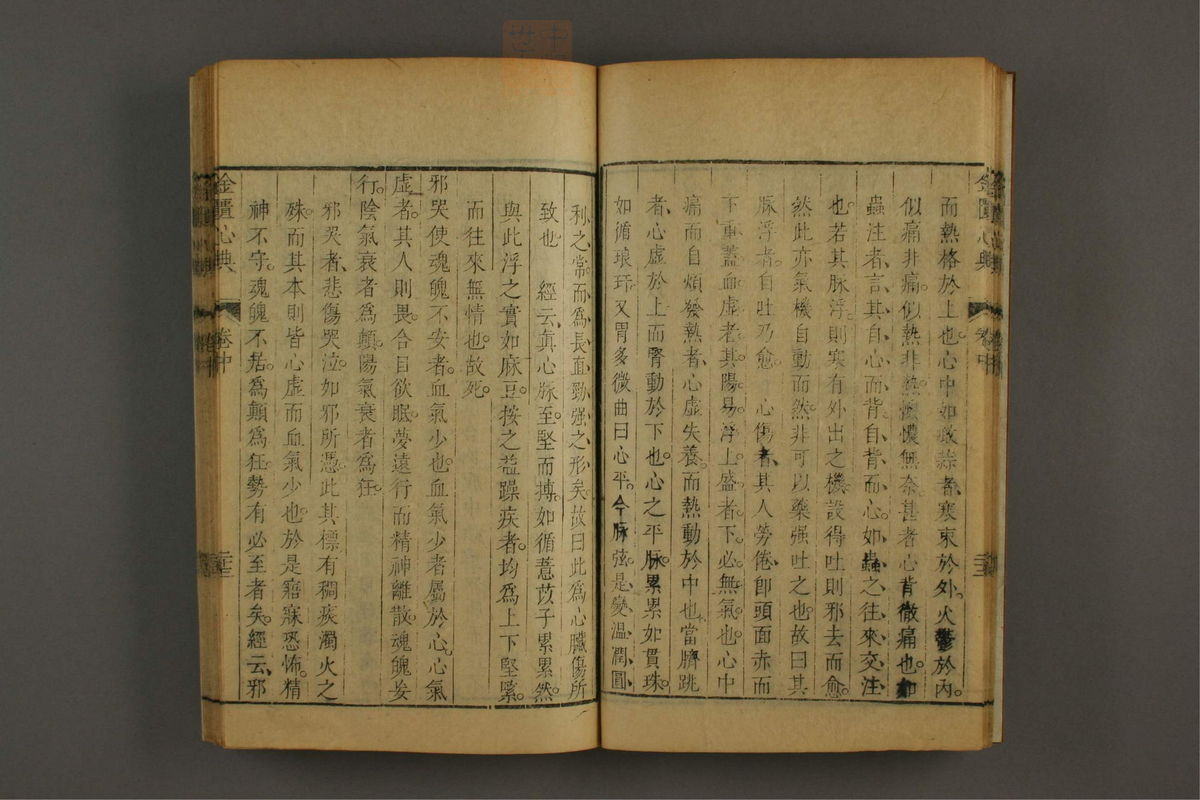 而熱格於上也。心中如噉蒜者、寒束於外。火鬱於內。
似痛非痛。似熱非熱懊憹無奈。甚者心背徹痛也。如
蟲注者、言其自心而背自背而心。如蟲之往來交注
也。若其脉浮。則寒有外出之機。設得吐則邪去而愈。
然此亦氣機自動而然。非可以藥强吐之也。故曰其
脉浮者。自吐乃愈 心傷者、其人勞倦。卽頭面赤而
下重。蓋血虛者。其陽易浮。上盛者。下必無氣也。心中
痛而自煩發熱者、心虛失養。而熱動於中也。當臍跳
者、心虛於上而腎動於下也。心之平脉。累累如貫珠。
如循琅玕。又胃多微曲曰心平。今脉弦。是變溫潤圓
利之常。而爲長直勁强之形矣。故曰此爲心臟傷所
致也 經云、真心脉至。堅而搏。如循薏苡子累累然。
與此浮之實如麻豆。按之益躁疾者。均爲上下堅緊。
而往來無情也。故死。
邪哭使魂魄不安者。血氣少也。血氣少者屬於心。心氣
虛者。其人則畏。合目欲眠。夢遠行而精神離散。魂魄妄
行。陰氣衰者爲顛。陽氣衰者爲狂。
邪哭者、悲傷哭泣。如邪所憑。此其標有稠痰濁火之
殊。而其本則皆心虛而血氣少也。於是寤寐恐怖。精
神不守。魂魄不居。爲顛爲狂。勢有必至者矣。經云、邪
金匱心典
卷中
二十三